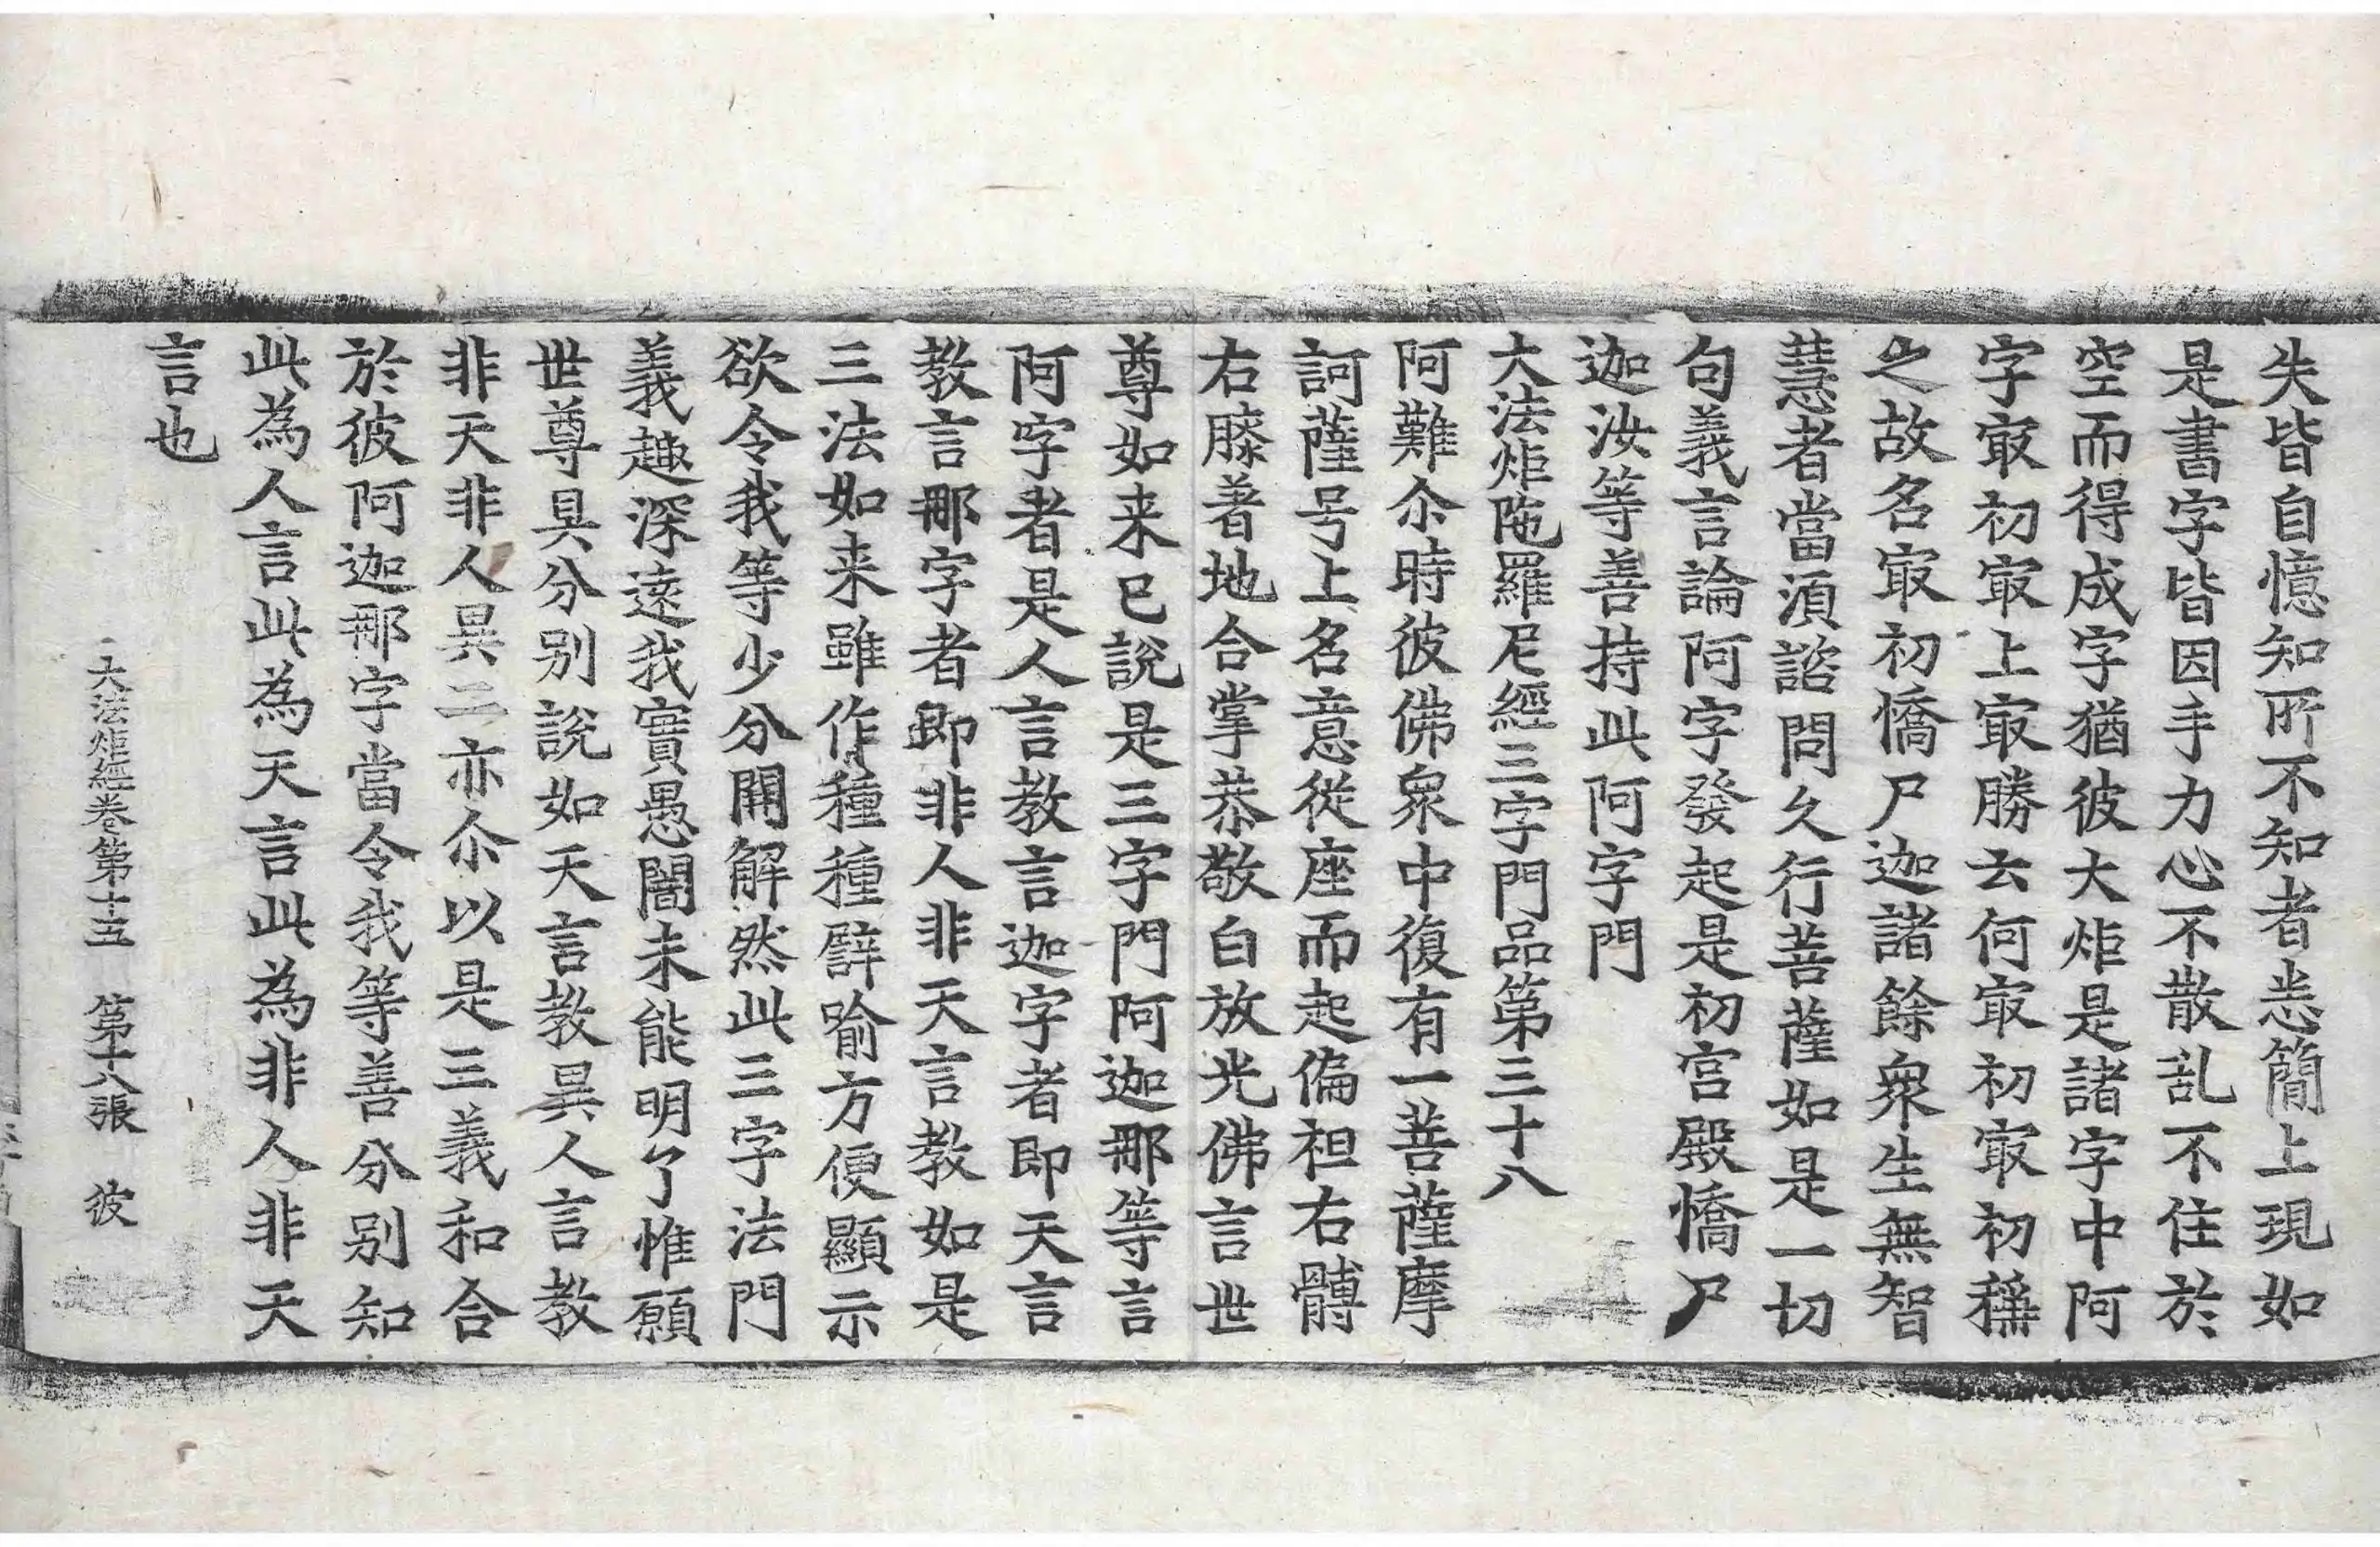 失皆自憶知所不知者恙簡上現如
是書字皆因手力心不散乱不住於
空而得成字猶彼大炬是諸字中阿
字㝡初㝡上㝡勝云何㝡初㝡初稱
之故名㝡初憍尸迦諸餘衆生無智
慧者當須諮問久行菩薩如是一切
句義言論阿字發起是初宮殿憍尸
迦汝等善持此阿字門
大法炬陁羅尼經三字門品第三十八
阿難尒時彼佛衆中復有一菩薩摩
訶薩号上名意從座而起偏袒右髆
右膝著地合掌恭敬白放光佛言世
尊如来已說是三字門阿迦那等言
阿字者是人言教言迦字者即天言
教言那字者即非人非天言教如是
三法如来雖作種種譬喻方便顯示
欲令我等少分開解然此三字法門
義趣深遠我實愚闇未能明了惟願
世尊具分別說如天言教異人言教
非天非人異二亦尒以是三義和合
於彼阿迦那字當令我等善分別知
此為人言此為天言此為非人非天
言也
大法炬經卷第十五 第十八張 彼